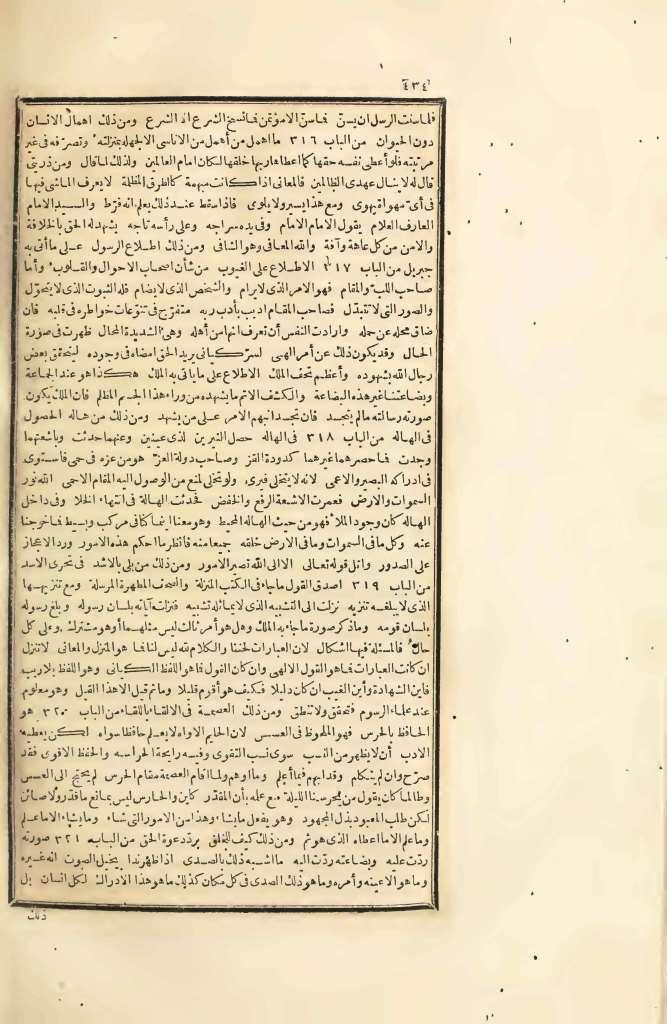 ٤٣٤
فلما سنت الرسل ان يسن فما سن الا مؤتمن فما نسخ الشرع الا الشرع ومن ذلك اهمال الانسان
دون الحيوان من الباب ٣١٦ ما اهمل من أهمل من الاناسى الا لجهله بمنزلته وتصرفه فى غير
مرتبته فلو أعطى نفسه حقها كما أعطاها ربها خلقها لكان امام العالمين ولذلك لما قال ومن ذريتى
قال له لا ينال عهدى الظالمين فالمعانى اذا كانت مبهمة كالطرق المظلمة لا يعرف الماشى فيها
فى أى مهواة يهوى ومع هذا يسير ولا يلوى فاذا سقط عند ذلك يعلم انه فرط والسيد الامام
العارف العلام يقول الامام الامام وفى يده سراجه وعلى رأسه تاجه يشهد له الحق بالخلافة
والامن من كل عاهة وآفة والله المعافى وهو الشافى ومن ذلك اطلاع الرسول على ما أتى به
جبريل من الباب ٣١٧ الاطلاع على الغيوب من شأن اصحاب الاحوال والقلوب وأما
صاحب اللب والمقام فهو الامر الذى لا يرام والشخص الذى لا يضام فله الثبوت الذى لا يتحول
والصور التى لا تتبدل فصاحب المقام اديب بأدب ربه متفرج فى تنوعات خواطره فى قلبه فان
ضاق محله عن حمله وارادت النفس أن تعرف انها من أهله وهى الشديدة المحال ظهرت فى صورة
الحال وقد يكون ذلك عن أمر الهى لسر كيانى يريد الحق امضاءه فى وجوده ليتحقق بعض
رجال الله بشهوده وأعظم تحف الملك الاطلاع على ما يأتى به الملك هكذا هو عند الجماعة
وبضاعتنا غير هذه البضاعة والكشف الاتم ما يشهده من وراء هذا الجسم المظلم فان الملك يكون
صورته رسالته ما لم يتجسد فان تجسد انبهم الامر على من يشهد ومن ذلك من هاله الحصول
فى الهاله من الباب ٣١٨ فى الهاله حصل النيرين لذى عينين وعنهما حدثت وباشعتهما
وجدت فما حصرهما غيرهما كدودة القز وصاحب دولة العز هو من عزه فى حمى فاستوى
فى ادراكه البصير والاعمى لانه لا يتجلى فيرى ولو تجلى لمنع من الوصول اليه المقام الاحمى الله نور
السموات والارض فعمرت الاشعة الرفع والخفض فحدثت الهالة فى انتهاء الخلا وفى داخل
الهاله كان وجود الملا فهو من حيث الهاله المحيط وهو معنا اينما كنا فى مركب وبسيط فما خرجنا
عنه وكل ما فى السموات وما فى الارض خلقه جميعا منه فانظر ما احكم هذه الامور ورد الاعجاز
على الصدور واتل قوله تعالى الا الى الله تصير الامور ومن ذلك من بلى بالاشد فى تحرى الاسد
من الباب ٣١٩ اصدق القول ما جاء فى الكتب المنزلة والصحف المطهرة المرسلة ومع تنزيهها
الذى لا يبلغه تنزيه نزلت الى التشبيه الذى لا يماثله تشبيه فنزلت آياته بلسان رسوله وبلغ رسوله
بلسان قومه وما ذكر صورة ما جاء به الملك وهل هو أمر ثالث ليس مثلهما أو هو مشترك وعلى كل
حال فالمسئلة فيها اشكال لان العبارات لحننا والكلام لله ليس لنا فما هو المنزل والمعانى لا تنزل
ان كانت العبارات فما هو القول الالهى وان كان القول فما هو اللفظ الكيانى وهو اللفظ بلا ريب
فأين الشهادة وأين الغيب ان كان دليلا فكيف هو أقوم قليلا وما ثم قيل الا هذا القيل وهو معلوم
عند علماء الرسوم فتحقق ولا تنطق ومن ذلك العصمة فى الالقاء باللقاء من الباب ٣٢٠ هو
الحافظ بالحرس فهو الملحوظ فى العسس لان الحليم الاواه لا يعلم حافظا سواه لكن يعطيه
الادب أن لا يظهر من النسب سوى نسب التقوى وفيه رايحة الحراسه والحفظ الاقوى فقد
صرح وان لم يتكلم وقد ابهم فيما أعلم وما اوهم ولما اقام العصمة مقام الحرس لم يحتج الى العسس
وطالما كان يقول من يحرسنا الليلة مع علمه بأن المقدر كاين والحارس ليس بمانع ما قدر ولا صائن
لكن طلب المعبود بذل المجهود وهو يفعل ما يشاء وهذا من الامور التى شاء وما يشاء الا ما علم
وما علم الا ما اعطاه الذى هو ثم ومن ذلك كيف للخلق برد دعوة الحق من الباب ٣٢١ صورته
ردت عليه وبضاعته ردت اليه ما اشبه ذلك بالصدى اذا ظهر ندا يخيل الصوت انه غيره
وما هو الا عينه وأمره وما هو ذلك الصدى فى كل مكان كذلك ما هو هذا الادراك لكل انسان بل
ذلك